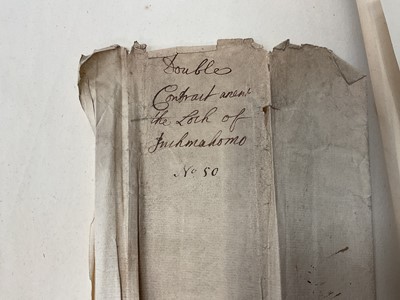 Double
Contract anent
the Loch of
Inchmahomo
No 50